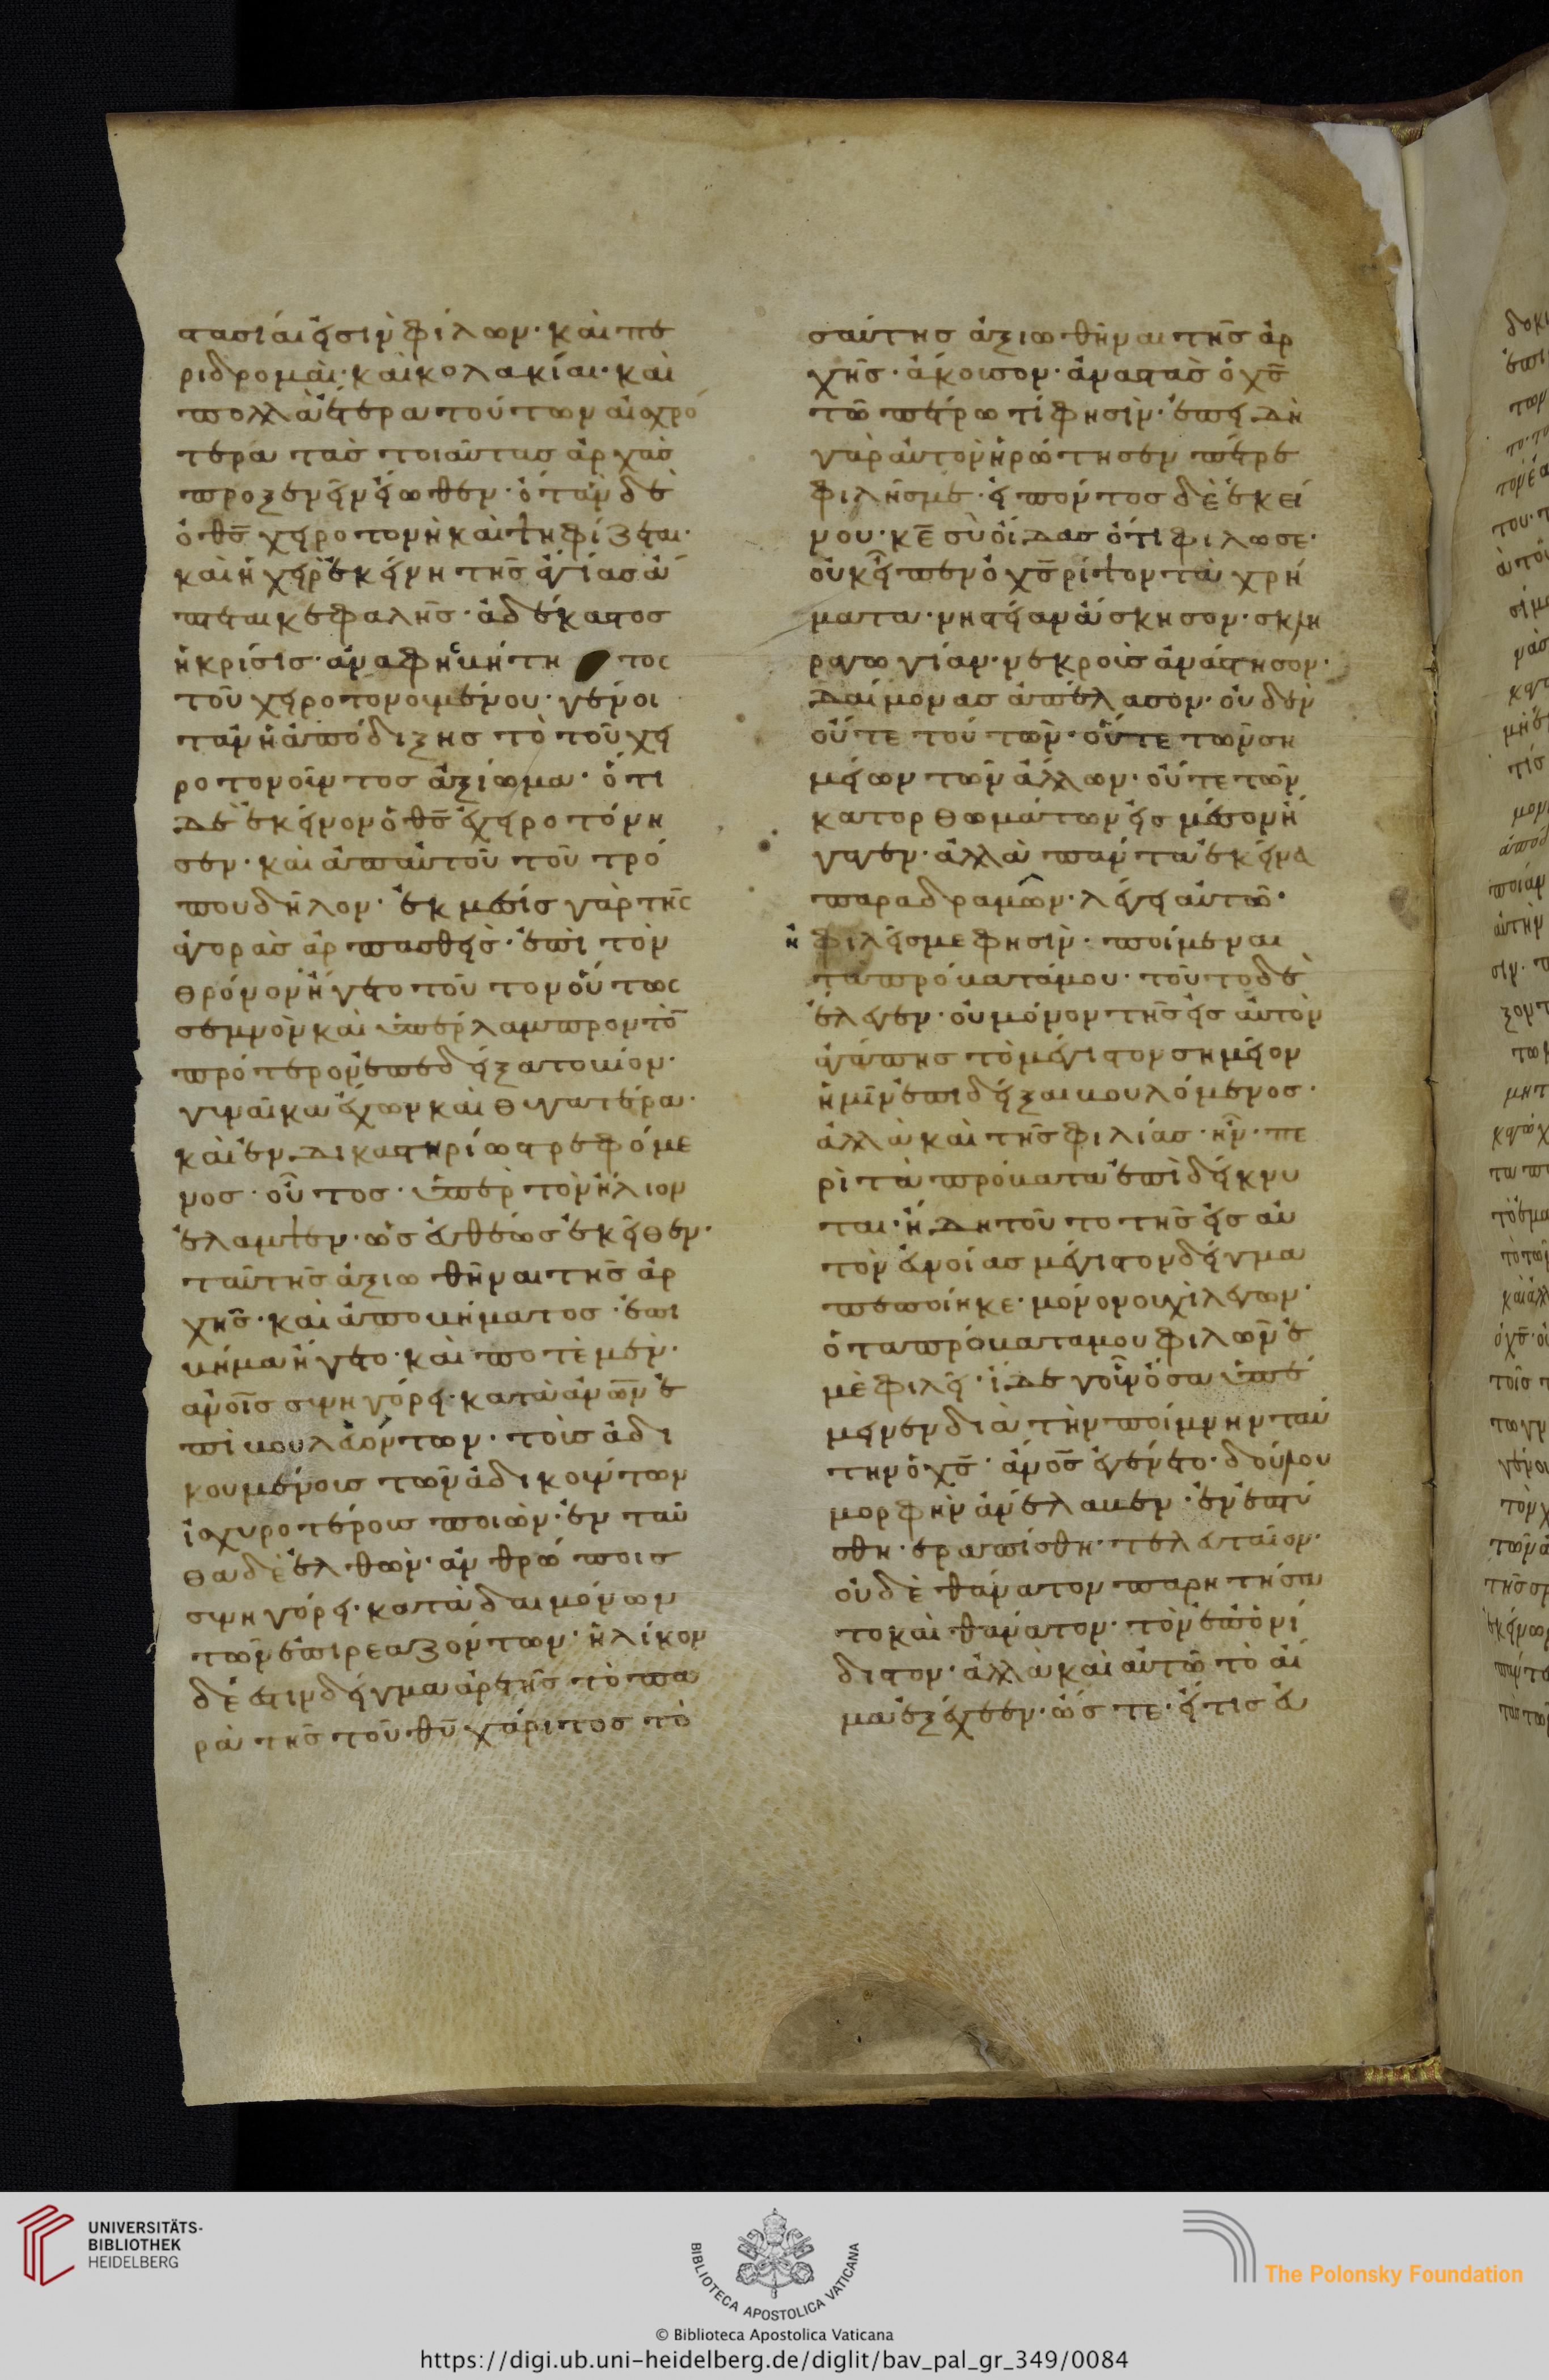 στασίαι εἰσὶν φίλων· καὶ πε
ριδρομαὶ· καὶ κολακίαι· καὶ
πολλὰ ἕτερα τούτων αἰσχρό
τερα τὰς τοιαύτας ἀρχὰς
προξενεῖν εἴωθεν· ὅταν δὲ
ὁ θς χειροτονῆ καὶ ψηφίζεται·
καὶ ἡ χεὶρ ἐκείνη τῆς ἁγίας ἅ
πτεται κεφαλῆς· ἀδέκαστος
ἡ κρίσις· ἀναφηβήτη τος
τοῦ χειροτονουμένου· γένοι
τἂν ἡ ἀπόδιξης τὸ τοῦ χει
ροτονοῦντος ἀξίωμα· ὅτι
δὲ ἐκεῖνον ὁ θς ἐχειροτόνη
σεν· καὶ ἀπαὐτοῦ τοῦ τρό
που δῆλον· ἐκ μέσις γὰρ τῆς
ἀγορὰς ἁρπασθεὶς· ἐπὶ τὸν
θρόνον ἤγετο τοῦτον οὕτως
σεμνὸν καὶ ὑπέρλαμπρον τὸ
πρότερον ἐπεδείξατο βίον·
γυναῖκα ἔχων καὶ θυγατέρα·
καὶ ἐν δικαστηρίω στρεφόμε
νος· οὗτος· ὑπὲρ τὸν ἥλιον
ἔλαμψεν· ὡς εὐθέως ἐκεῖθεν·
ταύτης ἀξιωθῆναι τῆς ἀρ
χῆς· καὶ ἀπὸ βήματος· ἐπι
βῆμα ἤγετο· καὶ ποτὲ μὲν·
ἀνοις συνηγόρει· κατὰ ἀνων ἐ
πιβουλεόντων· τοῖς ἀδι
κουμένοις τῶν ἀδικούντων
ἰσχυροτέρους ποιῶν· ἐνταῦ
θα δὲ ἐλθὼν· ἀνθρώποις
συνηγόρει· κατὰ δαιμόνων
τῶν ἐπιρεαζόντων· ἡλίκον
δέ ἐστιν δεῖγμα ἀρετῆς τὸ πα
ρὰ τῆς τοῦ θυ χάριτος τὸ
σαύτης ἀξιωθῆναι τῆς ἀρ
χῆς· ἄκουσον· ἀναστὰς ὁ χς
τῶ πέτρω τί φησὶν· ἐπει δὴ
γὰρ αὐτὸν ἠρώτησεν πέτρε
φιλεῖς με· εἰπόντος δὲ ἐκεί
νου· κε σὺ οἶδας ὅτι φιλῶ σε·
οὐκ εἶπεν ὁ χς ρίψον τὰ χρή
ματα· νηστείαν ἄσκησον· σκλη
ραγωγίαν· νεκροὺς ἀνάστησον·
δαίμονας ἀπέλασον· οὐδὲν
οὔτε τούτων· οὔτε τῶν ση
μείων τῶν ἄλλων· οὔτε τῶν
κατορθωμάτων εἰς μέσον ἤ
γαγεν· ἀλλὰ πάντα ἐκεῖνα
παραδραμῶν· λέγει αὐτῶ·
εἰ φιλεῖς με φησὶν· ποίμεναι
τὰ πρόβατά μου· τοῦτο δὲ
ἔλεγεν· οὐ μόνον τῆς εἰς αὐτὸν
ἀγάπης τὸ μέγιστον σημεῖον
ἡμῖν ἐπιδεῖξαι βουλόμενος·
ἀλλὰ καὶ τῆς φιλίας· ἣν· πε
ρὶ τὰ πρόβατα ἐπιδείκνυ
ται· ἤδη τοῦτο τῆς εἰς αὐ
τὸν εὐνοίας μέγιστον δεῖγμα
πεποίηκε· μονονουχὶ λέγων·
ὁ τα πρόβατα μου φιλῶν ἐ
μὲ φιλεῖ· ἴδε γοῦν ὅσα ὑπέ
μεινεν διὰ τὴν ποίμνην ταύ
την ὁ χς· ἄνος ἐγένετο· δούλου
μορφὴν ἀνέλαβεν· ἐνεπτύ
σθη· ἐραπίσθη· τελευταῖον·
οὐδὲ θάνατον παρητήσα
το καὶ θάνατον· τὸν ἐπονί
διστον· ἀλλὰ καὶ αὐτῶ τὸ αἷ
μα ἐξέχεεν· ὥς τε· εἴ τις εὐ